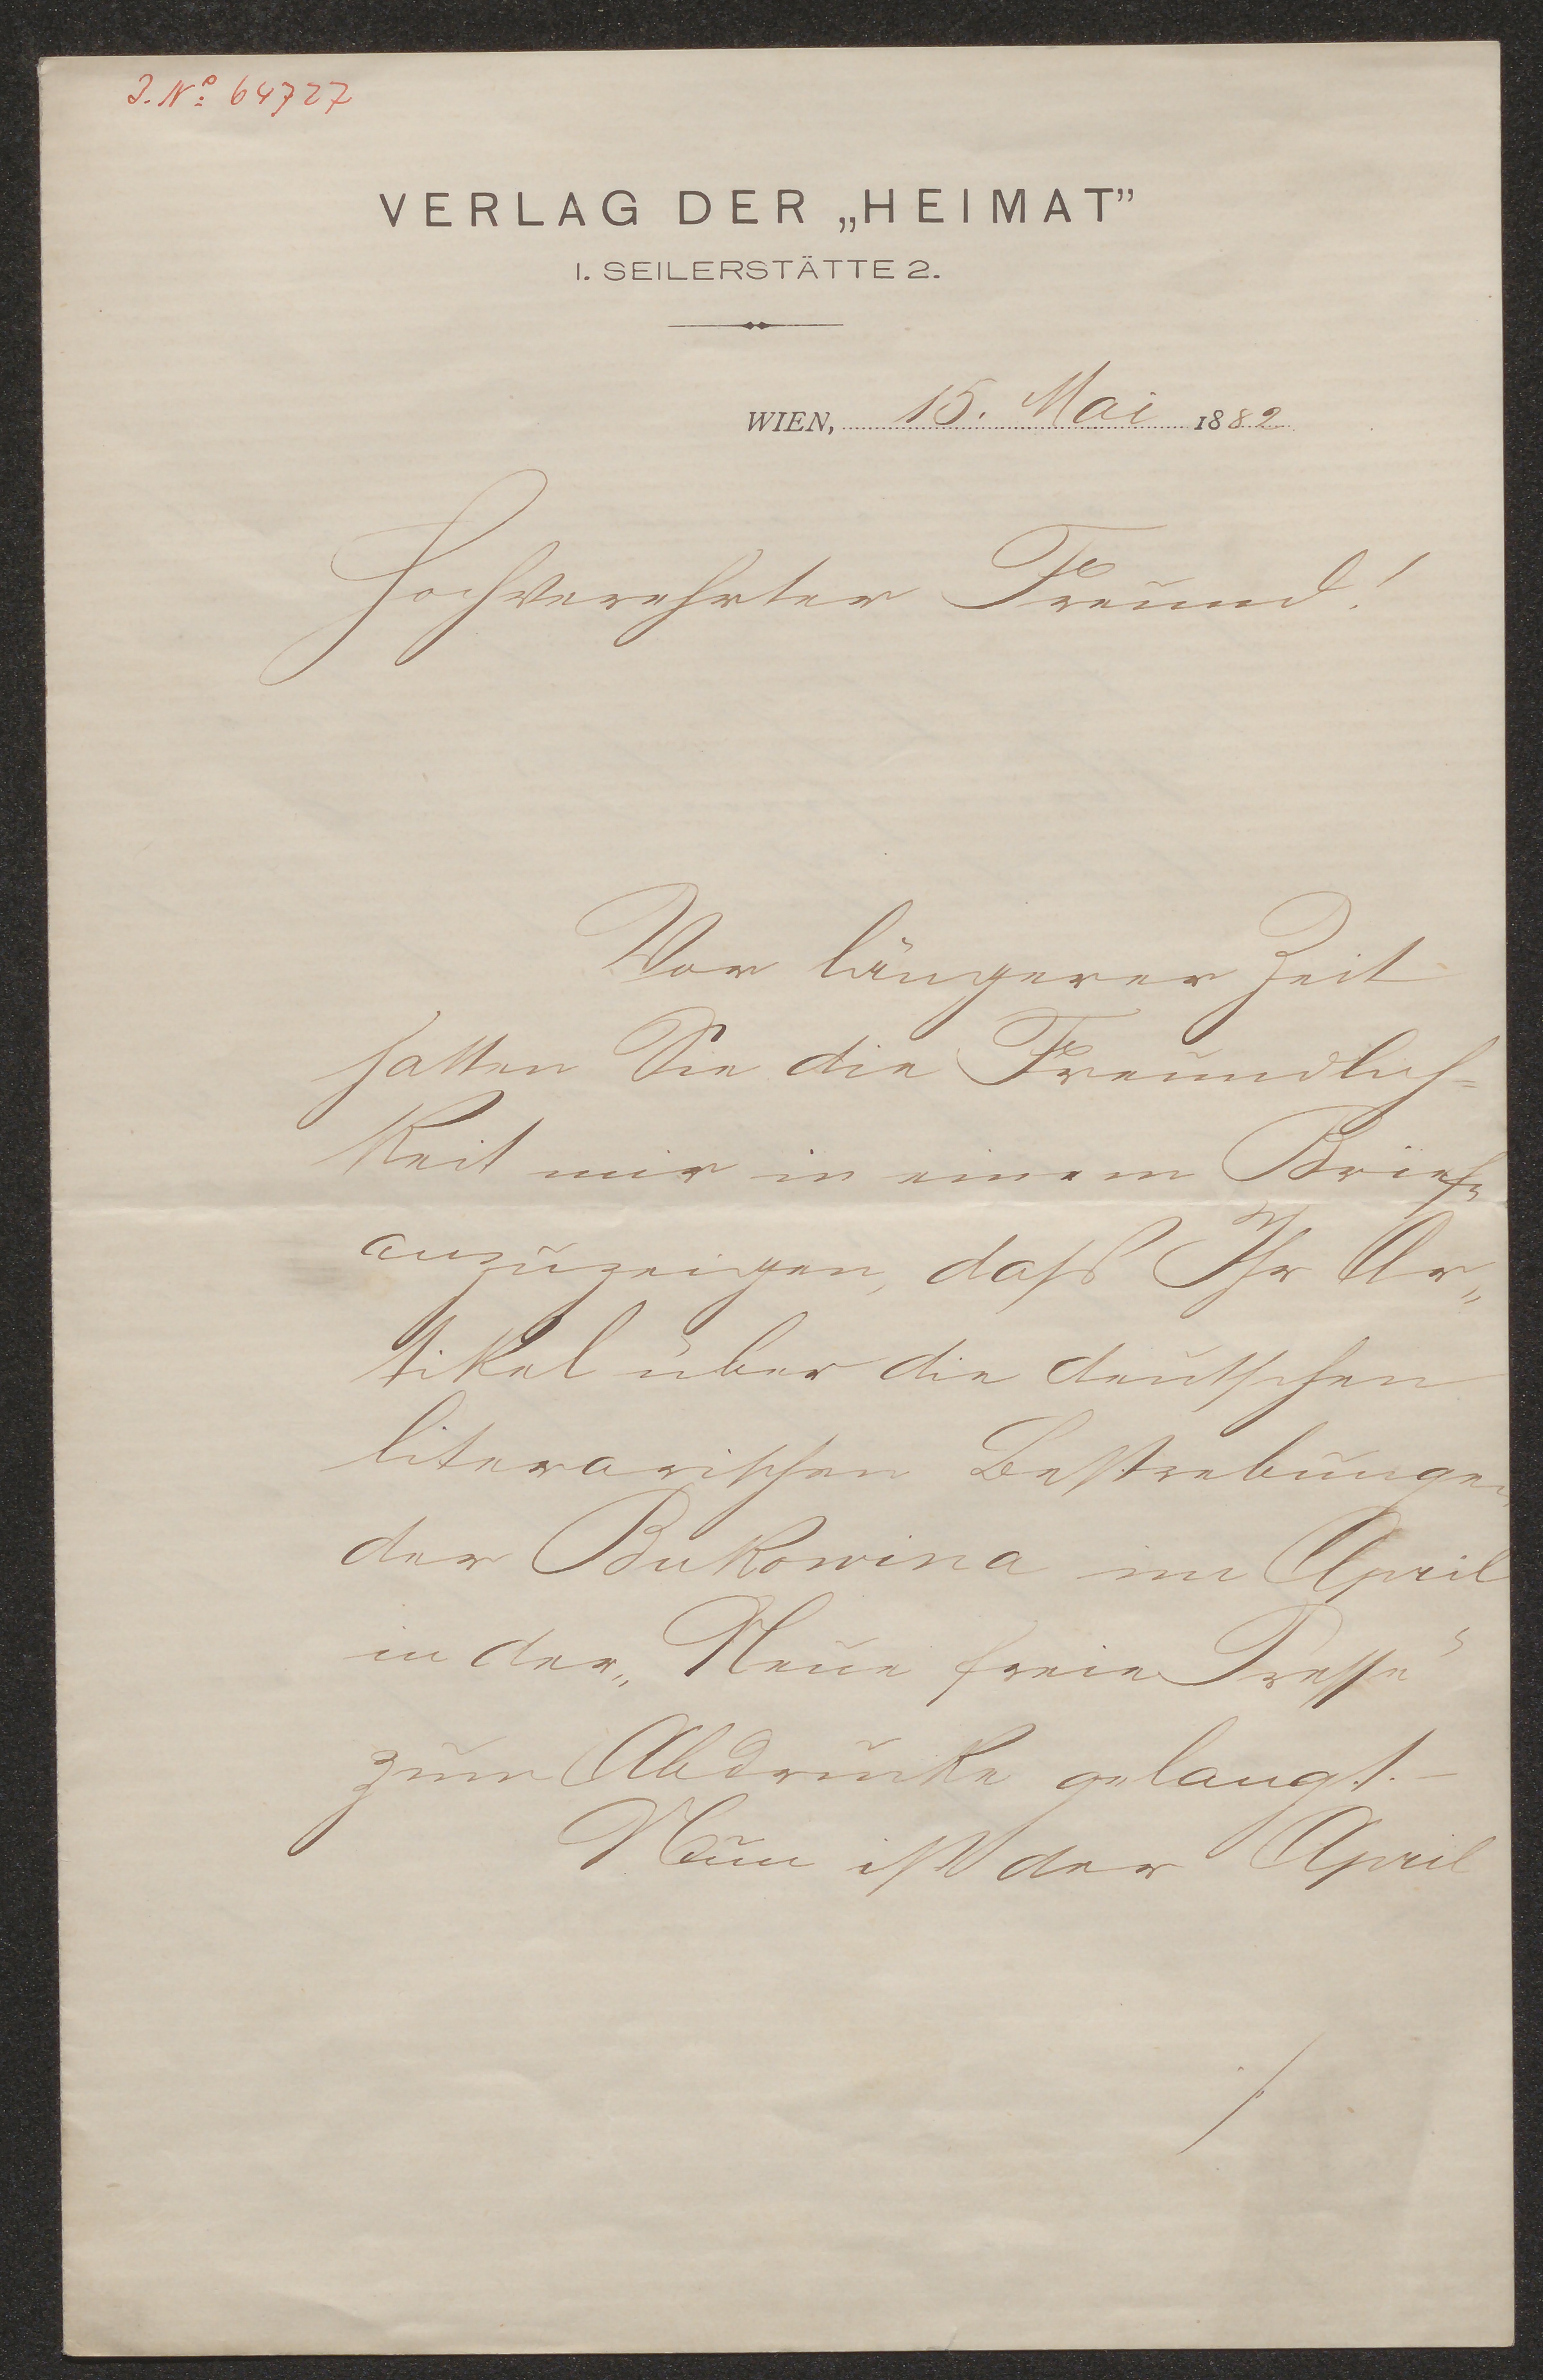 J. Nº 64727
VERLAG DER „HEIMAT”
I. SEILERSTÄTTE 2.
WIEN, 15. Mai 1882
Hochverehrter Freund!
Vor längerer Zeit
hatten Sie die Freundlich=
keit mir in einem Briefe
anzuzeigen, daß Ihr Ar„
tikel über die deutschen
literarischen Bestrebungen
der Bukowina im April
in der „Neue freie Presse“
zum Abdrucke gelangt. –
Nun ist der April